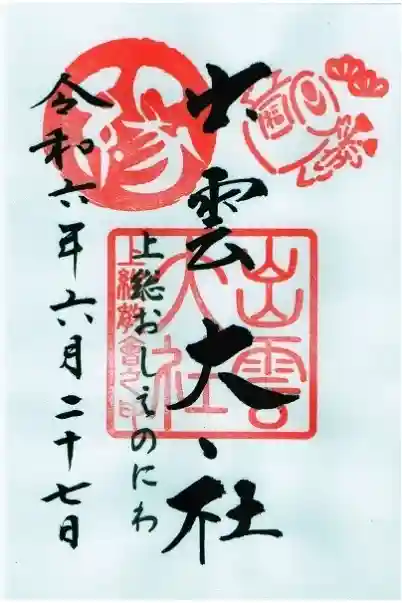 出雲大社
上総おしえのにわ
令和六年六月二十七日
縁
出雲
大社
上総教會之印